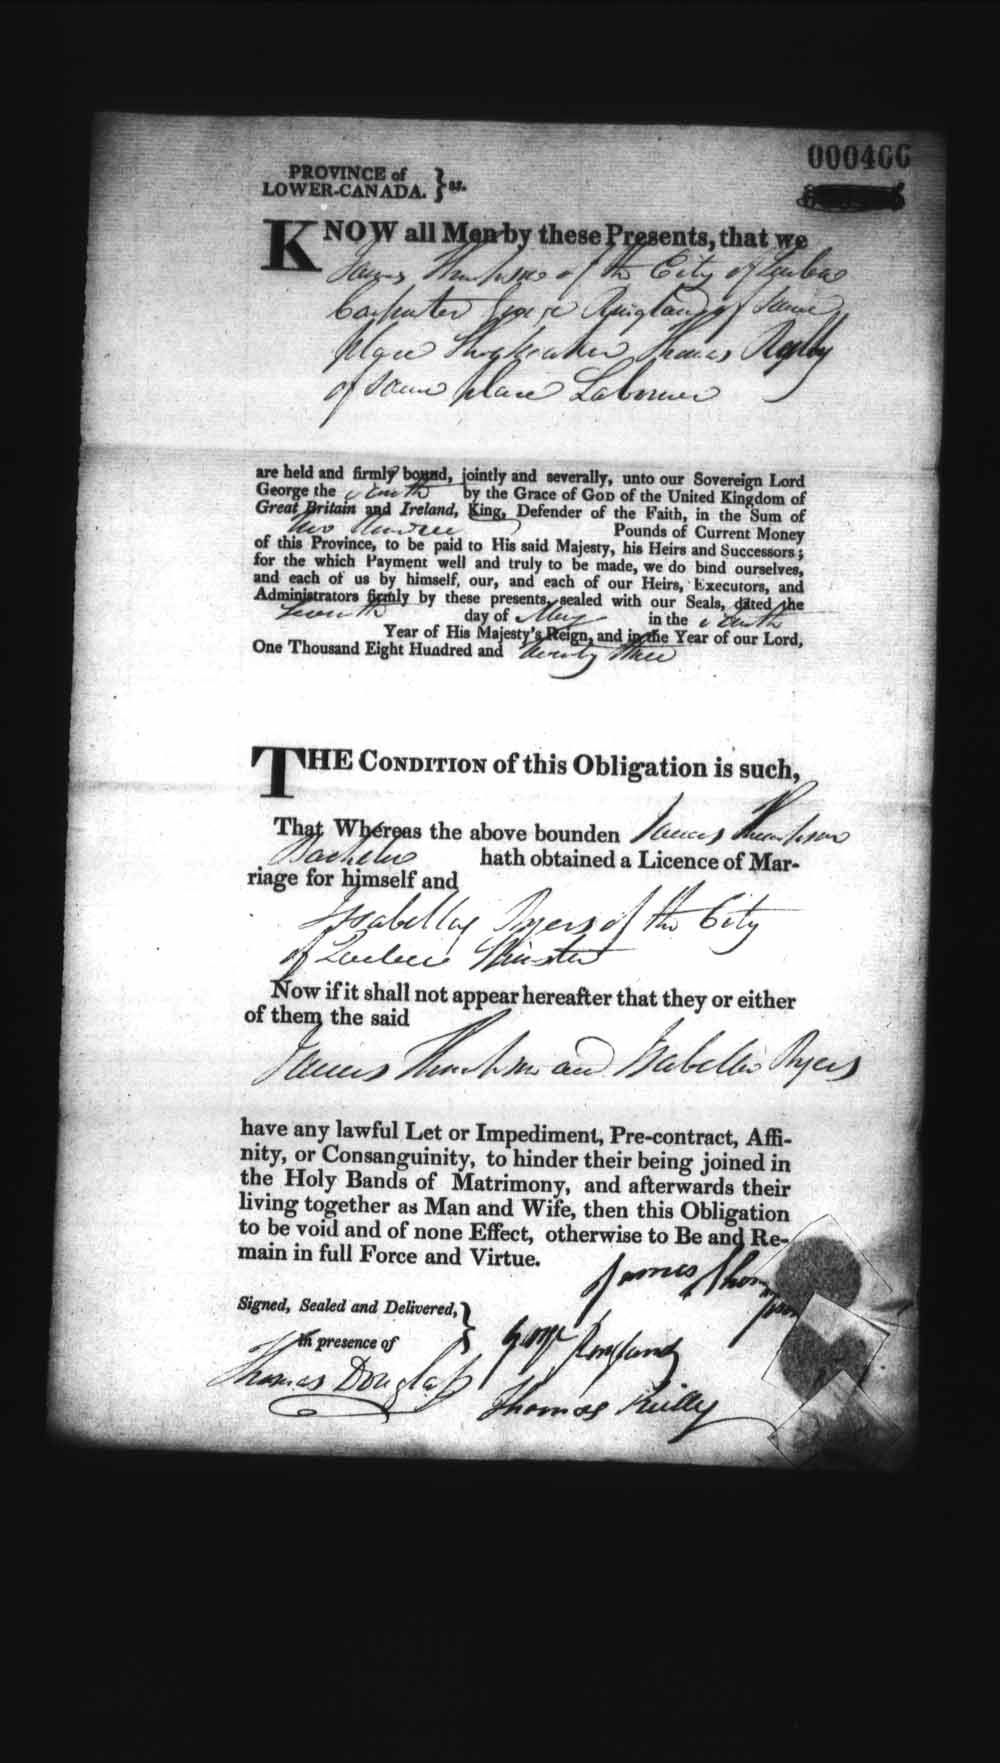 000466
PROVINCE of
LOWER-CANADA. } ss.
KNOW all Men by these Presents, that we
James Thompson of the City of Quebec
Carpenter George Ringland of same
place Thomas Reilly
of same place Labourer
are held and firmly bound, jointly and severally, unto our Sovereign Lord
George the fourth by the Grace of GOD of the United Kingdom of
Great Britain and Ireland, King, Defender of the Faith, in the Sum of
two Hundred Pounds of Current Money
of this Province, to be paid to His said Majesty, his Heirs and Successors;
for the which Payment well and truly to be made, we do bind ourselves,
and each of us by himself, our, and each of our Heirs, Executors, and
Administrators firmly by these presents, sealed with our Seals, dated the
day of May in the fourth
Year of His Majesty's Reign, and in the Year of our Lord,
One Thousand Eight Hundred and twenty three
THE CONDITION of this Obligation is such,
That Whereas the above bounden James Thompson
Bachelor hath obtained a Licence of Mar-
riage for himself and
Issabella Ryers of the City
of Quebec Spinster
Now if it shall not appear hereafter that they or either
of them the said
James Thompson and Isabella Ryers
have any lawful Let or Impediment, Pre-contract, Affi-
nity, or Consanguinity, to hinder their being joined in
the Holy Bands of Matrimony, and afterwards their
living together as Man and Wife, then this Obligation
to be void and of none Effect, otherwise to Be and Re-
main in full Force and Virtue.
James Thompson
Signed, Sealed and Delivered, }
in presence of
George Ringland
Thomas Douglass
Thomas Reilly